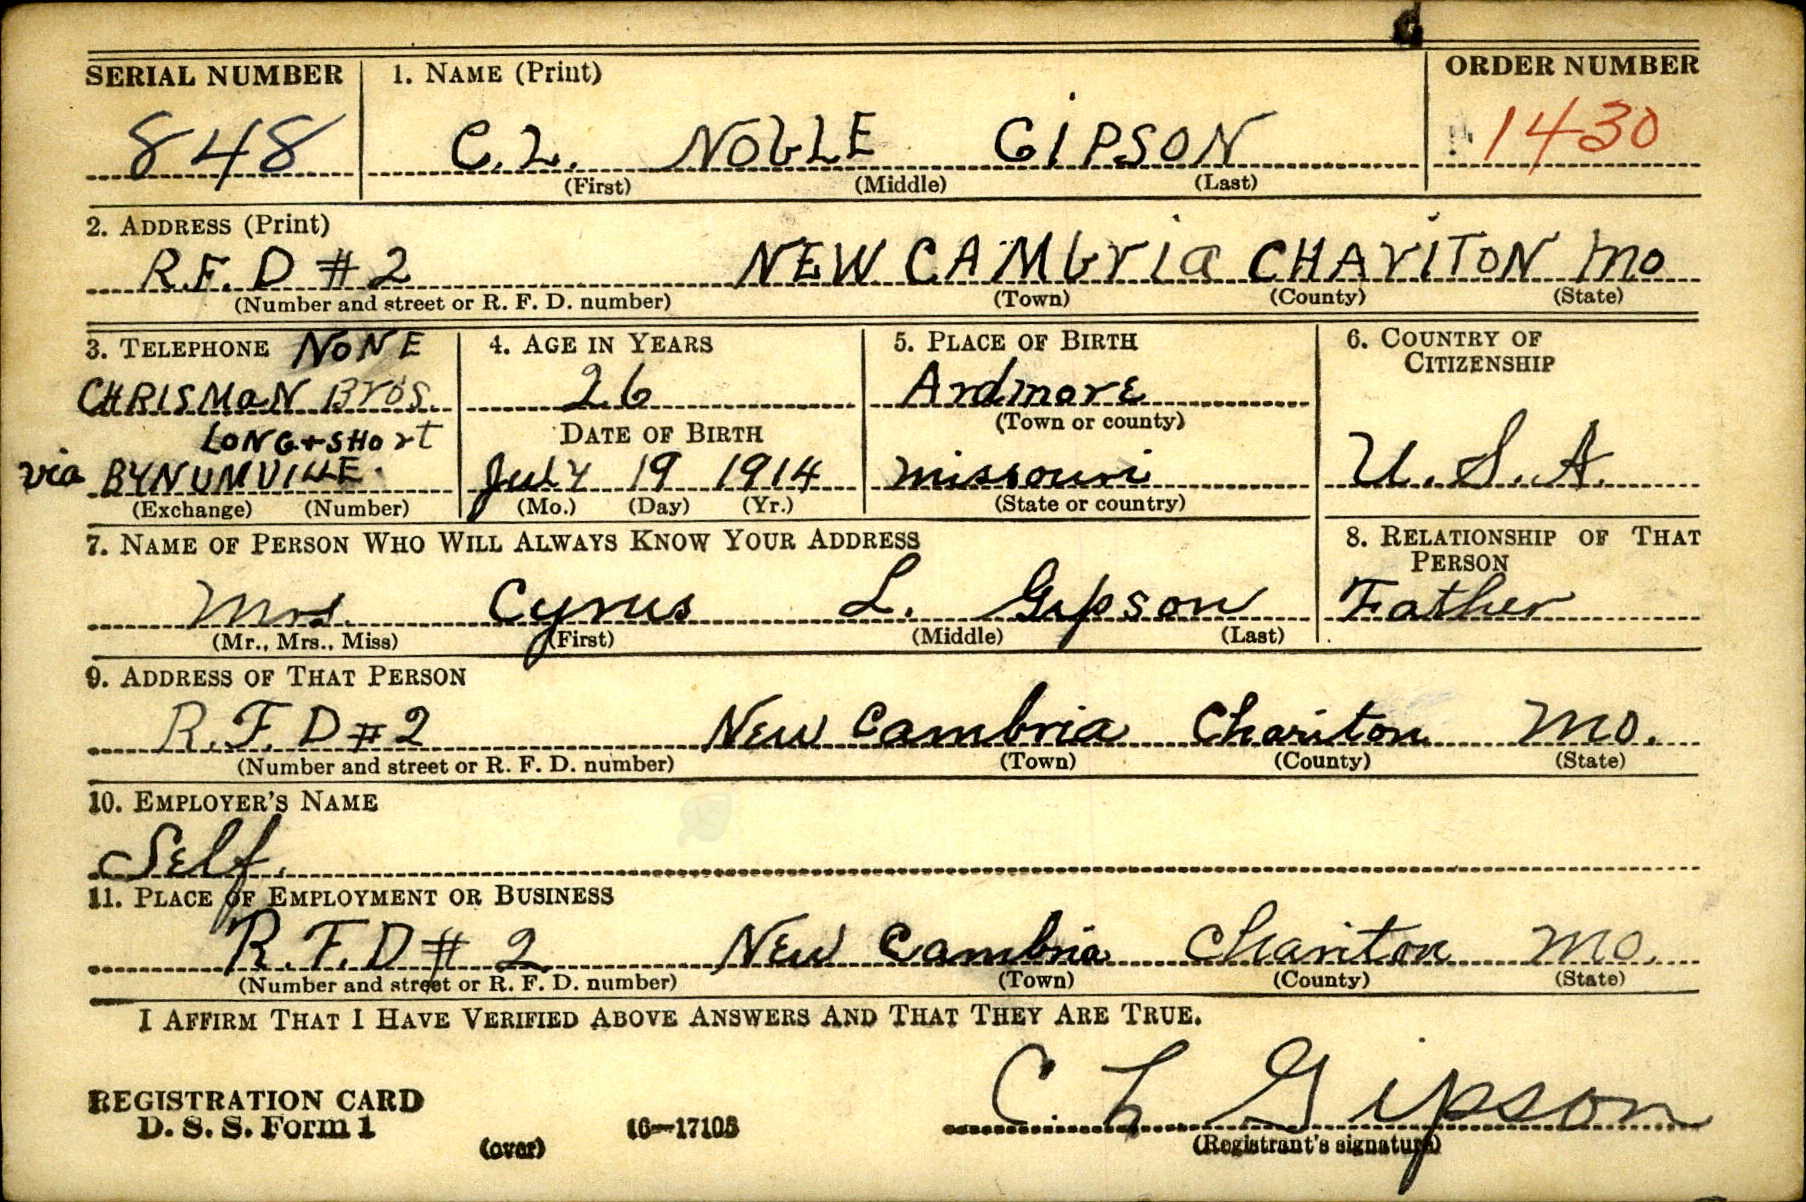 SERIAL NUMBER 1. NAME (Print) ORDER NUMBER
848 C.L. NOBLE GIPSON 1430
(First) (Middle) (Last)
2. ADDRESS (Print)
R.F.D #2 NEW CAMbria CHARITON MO
(Number and street or R. F. D. number) (Town) (County) (State)
3. TELEPHONE NONE 4. AGE IN YEARS 5. PLACE OF BIRTH 6. COUNTRY OF CITIZENSHIP
CHRISMaN Bros. 26 Ardmore
LONG+SHort DATE OF BIRTH (Town or county)
via BYNUMVILLE. July 19 1914 Missouri U.S.A.
(Exchange) (Number) (Mo.) (Day) (Yr.) (State or country)
7. NAME OF PERSON WHO WILL ALWAYS KNOW YOUR ADDRESS 8. RELATIONSHIP OF THAT PERSON
Mrs. Cyrus L. Gipson Father
(Mr., Mrs., Miss) (First) (Middle) (Last)
9. ADDRESS OF THAT PERSON
R.F.D #2 New Cambria Chariton Mo.
(Number and street or R. F. D. number) (Town) (County) (State)
10. EMPLOYER'S NAME
Self.
11. PLACE OF EMPLOYMENT OR BUSINESS
R.F.D # 2 New Cambria Chariton Mo.
(Number and street or R. F. D. number) (Town) (County) (State)
I AFFIRM THAT I HAVE VERIFIED ABOVE ANSWERS AND THAT THEY ARE TRUE.
C. L. Gipson
REGISTRATION CARD
D. S. S. Form 1 (over) 16—17105 (Registrant's signature)